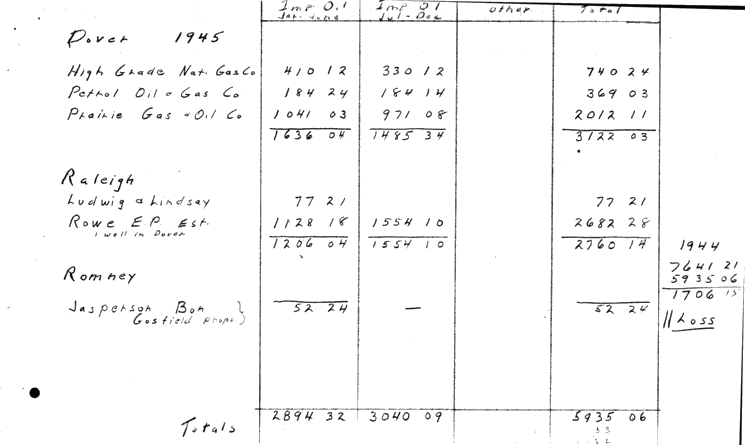 Imp Oil Imp Oil Other Total
Jan-June Jul-Dec
Dover 1945
High Grade Nat. Gas Co 410 12 330 12 740 24
Petrol Oil & Gas Co 184 24 184 14 369 03
Prairie Gas & Oil Co 1041 03 971 08 2012 11
1636 04 1485 34 3122 03
Raleigh
Ludwig & Lindsay 77 21 77 21
Rowe E.P. Est. 1128 18 1554 10 2682 28
1 well in Dover
1206 04 1554 10 2760 14 1944
7641 21
Romney 5935 06
1706 15
Jasperson Bon } 52 24 — 52 24
Gosfield props) // Loss
Totals 2894 32 3040 09 5935 06